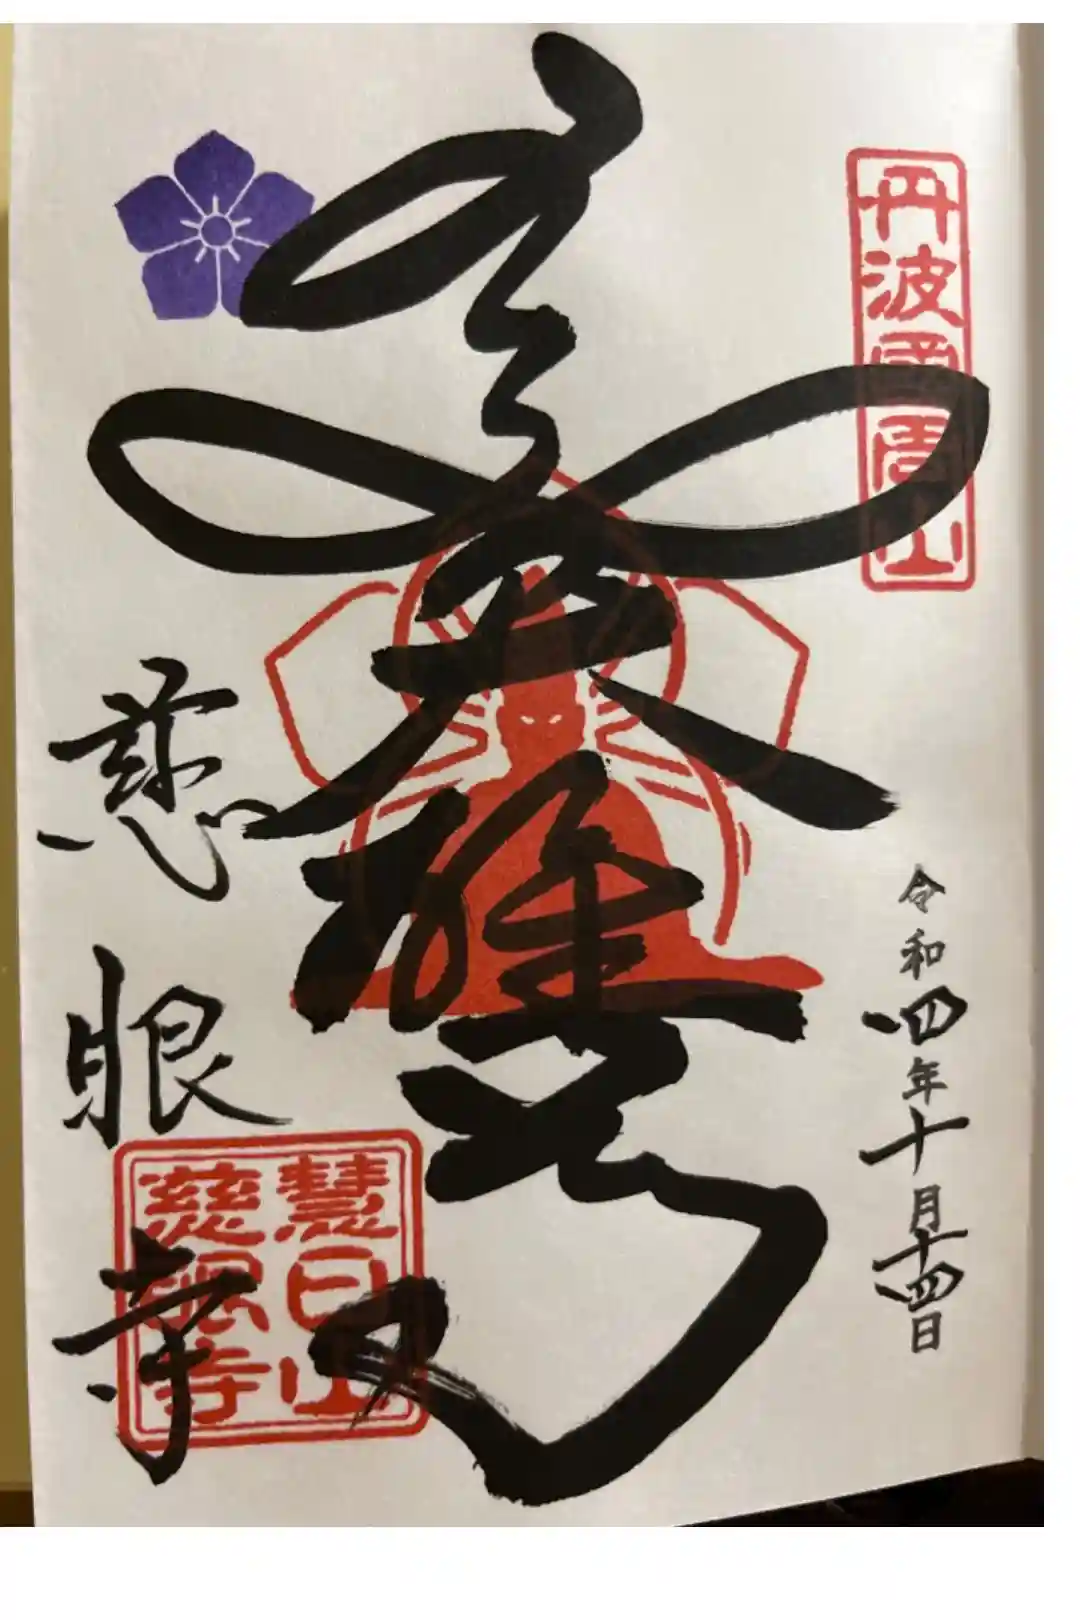 丹波國周山
令和四年十月十四日
雄
慈眼寺
慧日山
慈眼寺